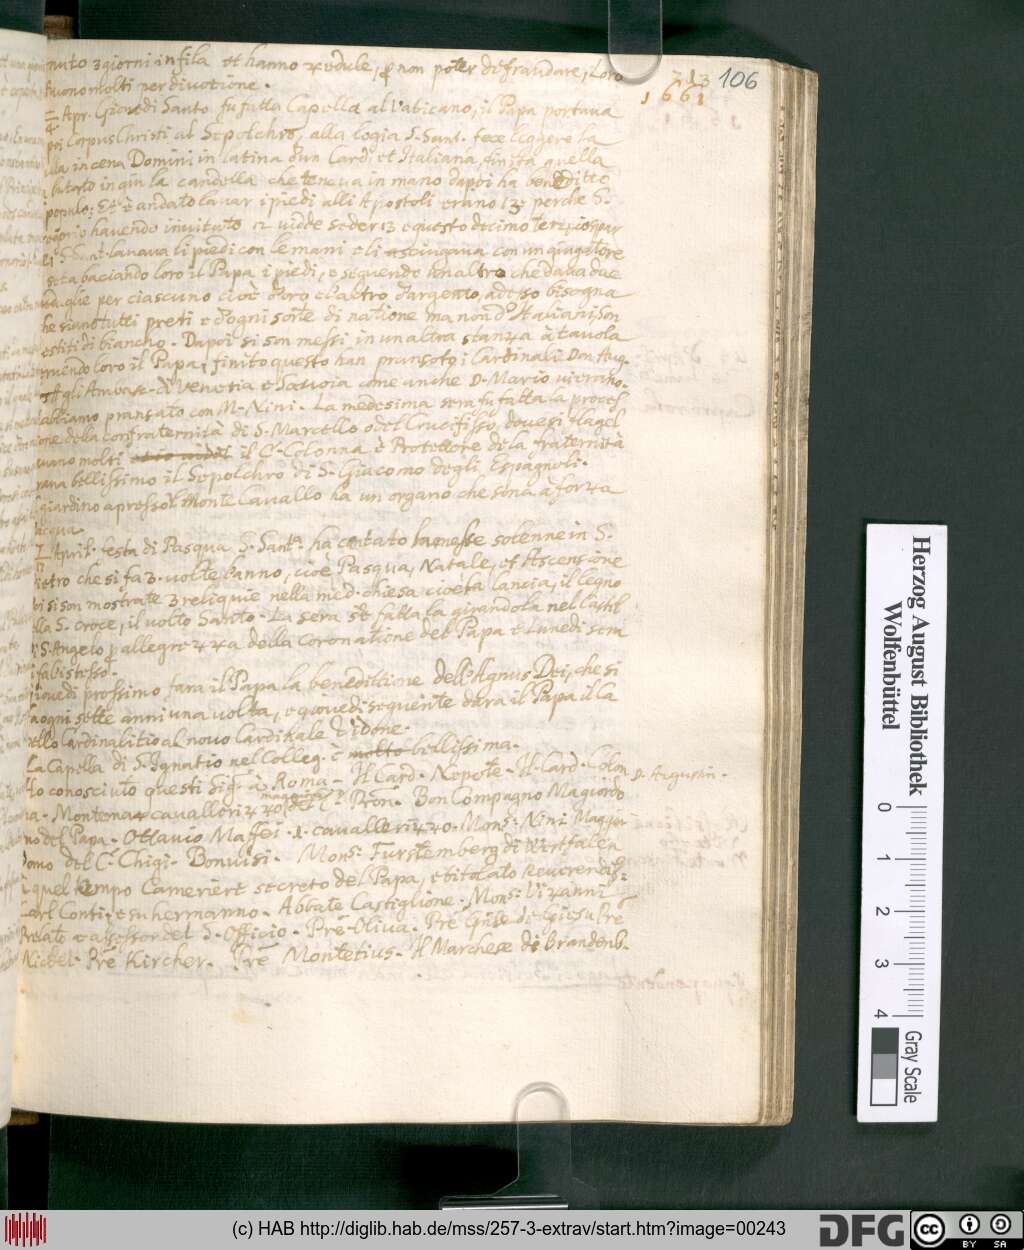 213 106
1661
nuto 3 giorni in fila et hanno cedule, non poter defraudare, Loro
buono molti per divotione.
Apr. Giovedi Santo fu fatta Capella al Vaticano, il Papa portava
poi Corpus Christi al Sepolchro, alla logia S. Sant. fece leggere la
in cena Domini in latina d'un Card. et Italiana, finita quella
butato in giu la candella che teneva in mano dapoi ha benedetto
popolo; è andato lavar i piedi alli Apostoli erano 13. perche S.
havendo invitato 12 vidde seder 13 e questo decimo terzo
S. Sant. lavava li piedi con le mani e li asciugava con un
baciando loro il Papa i piedi, e seguendo un altro che dava due
per ciascuno cioè d'oro e l'altro d'argento, adesso bisogna
che siano tutti preti e d'ogni sorte di natione ma non d'Italiani, son
vestiti di biancho. Dapoi si son messi in un altra stanza à tavola
servendo loro il Papa, finito questo han pransato i Cardinali Don Aug.
gli Ambasc. di Venetia e Savoia come anche D. Mario
abbiamo pransato con M. Nini. La medesima sera fu fatta la process
ione della confraternità di S. Marcello o del Crucifisso, dove si flagel
avano molti il C. Colonna è Protettore dela fraternità
era bellissimo il Sepolchro di S. Giacomo degli Espagnoli.
giardino apresso Monte Cavallo ha un organo che sona à forza
acqua.
April. festa di Pasqua S. Sant. ha cantato la messe solenne in S.
Pietro che si fa 3. volte l'anno, cioè Pasqua, Natale, et Ascensione
poi si son mostrate 3 reliquie nella med. chiesa cioè la lancia, il legno
della S. Croce, il volto Santo. La sera fatta la girandola nel Castel
di S. Angelo allegrezza della coronatione del Papa e Lunedi sera
si fa l'istesso.
Giovedi prossimo fara il Papa la benedittione dell'Agnus Dei, che si
fa ogni sette anni una volta, e giovedi sequente dara il Papa il la
pello Cardinalitio al novo Cardinale
La Capella di S. Ignatio nel Colleg. è molto bellissima.
Ho conosciuto questi Sig. à Roma. Il Card. Nepote. Il Card. Colon D. Augustin.
na. Montena cavallerizzo del C. Bon Compagno Magiordo
mo del Papa. Ottavio Maffei. 1. cavallerizzo. Mons. Nini Maggior
domo del C. Chigi. Bonvisi. Mons. Furstemberg di Westfalen
quel tempo Cameriere secreto del Papa, e titolato Reverendis.
Carl Conti, e su hermanno. Abbate Castiglione. Mons. Vizanni
Prelato e assessor del S. Officio. Pre Oliva. Pre
Nickel. Pre Kircher. Pre Montetius. Il Marchese di Brandenb.
Herzog August Bibliothek
Wolfenbüttel
0 1 2 3 4
Gray Scale
(c) HAB http://diglib.hab.de/mss/257-3-extrav/start.htm?image=00243
DFG
cc BY SA